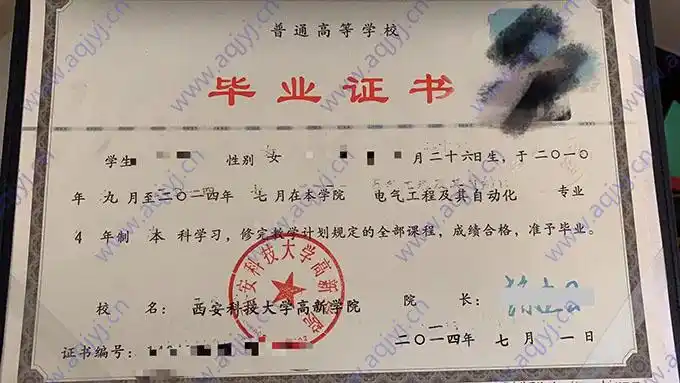 普通高等学校
毕业证书
学生 性别 女 月二十六日生，于二〇一〇
年九月至二〇一四年 七月在本学院 电气工程及其自动化 专业
4 年制 本 科学习，修完教学计划规定的全部课程，成绩合格，准予毕业。
校 名： 西安科技大学高新学院 院 长：
证书编号： 二〇一四年 七 月 一日
西安科技大学高新学院
www.aqjyj.cn